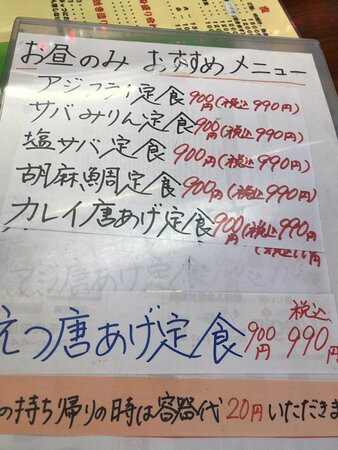 お昼のみ おすすめメニュー
アジフライ定食 900円(税込990円)
サバみりん定食 900円(税込990円)
塩サバ定食 900円(税込990円)
胡麻鯛定食 900円(税込990円)
カレイ唐あげ定食 900円(税込990円)
えつ唐あげ定食 900円 税込990円
の持ち帰りの時は容器代20円いただきま